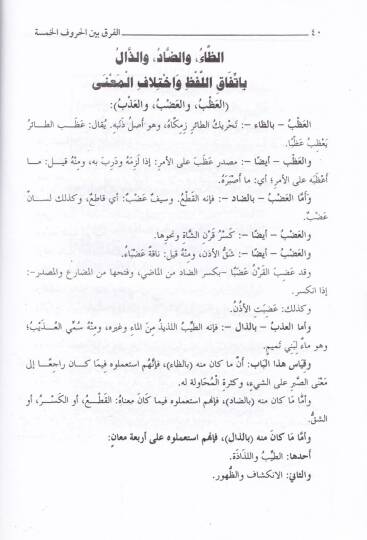 ٤٠ الفرق بين الحروف الخمسة
الظَّاءُ، والضَّادُ، والذَّالُ
بِاتِّفَاقِ اللَّفْظِ وَاخْتِلافِ الْمَعْنَى
(العَظْبُ، والعَضْبُ، والعَذْبُ):
العَظْبُ – بالظاء –: تَحْرِيكُ الطائرِ زِمِكَّاهُ، وهو أَصلُ ذَنَبِهِ. يُقالُ: عَظَـب الطائـرُ
يَعْظِبُ عَظْبًا.
والعَظْب – أيضًا –: مصدر عَظَبَ على الأمرِ: إذا لَزِمَهُ ودَرِبَ به، ومِنْهُ قيـل: مـا
أَعْظَبَهُ على الأمرِ؛ أي: ما أَصْبَرَهُ.
وأمَّا العَضْبُ – بالضاد –: فإنه القَطْعُ. وسيفٌ عَضْبٌ: أي قاطِعٌ، وكذلك لسـانٌ
عَضْبٌ.
والعَضْبُ – أيضًا –: كَسْرُ قَرْنِ الشَّاةِ ونحوِها.
والعَضْبُ – أيضًا –: شَقُّ الأذنِ، ومنْهُ قيل: ناقةٌ عَضْبَاءُ.
وقد عَضِبَ القَرْنُ عَضَبًا –بكسرِ الضاد من الماضي، وفتحها من المضارع والمصدر–:
إذا انكسر.
وكذلك: عَضِبَتِ الأُذُنُ.
وأما العذبُ – بالذال –: فإنه الطيِّبُ اللذيذُ مِنَ الماءِ وغيرِه، ومِنْهُ سُمِّي العُـذَيْبُ؛
وهو ماءٌ لِبَنِي تَميمٍ.
وقِيَاس هذا البَاب: أنَّ ما كانَ منه (بالظاء)، فإنَّهُم استعملوه فِيمَا كـان راجِعًـا إلى
مَعْنَى الصَّبْرِ على الشيءِ، وكثرةِ المُحَاولةِ له.
وأمَّا مَا كان منه (بالضادِ)، فإنهم استعملوه فيما كَانَ معناهُ: القَطْعُ، أو الكَسْرُ، أو
الشقُّ.
وأمَّا مَا كـان منه (بالذال)، فإنهم استعملوه على أربعة معانٍ:
أحدها: الطيِّبُ واللذَاذَة.
والثاني: الانكشاف والظُهور.